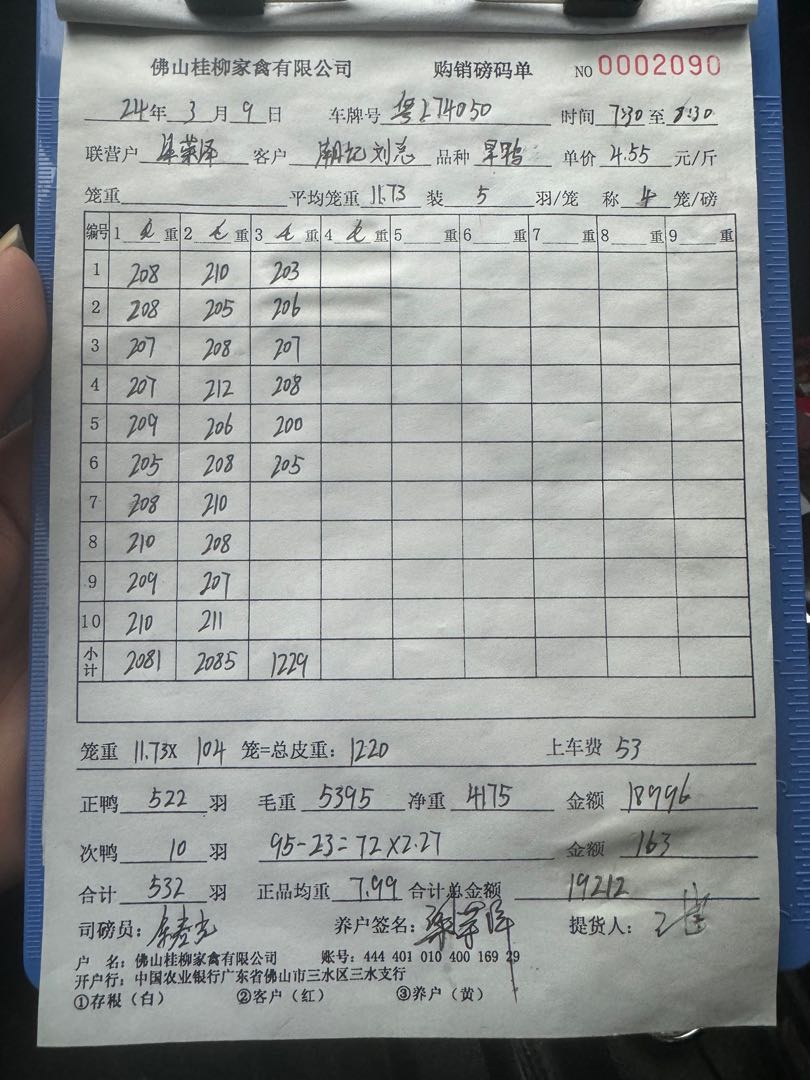 佛山桂柳家禽有限公司 购销磅码单 NO 0002090
24年 3月 9日 车牌号 粤L74050 时间 7:30至 8:30
联营户 客户 潮记刘总 品种 旱鸭 单价 4.55 元/斤
笼重 平均笼重 11.73 装 5 羽/笼 称 4 笼/磅
编号 1 毛 重 2 毛 重 3 毛 重 4 毛 重 5 重 6 重 7 重 8 重 9 重
1 208 210 203
2 208 205 206
3 207 208 207
4 207 212 208
5 209 206 200
6 205 208 205
7 208 210
8 210 208
9 209 207
10 210 211
小计 2081 2085 1229
笼重 11.73X 104 笼=总皮重: 1220 上车费 53
正鸭 522 羽 毛重 5395 净重 4175 金额 18996
次鸭 10 羽 95-23=72X2.27 金额 163
合计 532 羽 正品均重 7.99 合计总金额 19212
司磅员: 养户签名: 提货人:
户 名: 佛山桂柳家禽有限公司 账号: 444 401 010 400 169 29
开户行: 中国农业银行广东省佛山市三水区三水支行
①存根（白） ②客户（红） ③养户（黄）